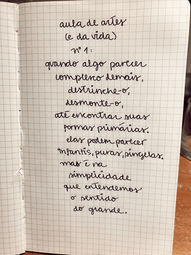 aula de artes
(e da vida)
nº 1:
quando algo parecer
complexo demais,
destrinche-o,
desmonte-o,
até encontrar suas
formas primárias.
elas podem parecer
infantis, puras, singelas.
mas é na
simplicidade
que entendemos
o sentido
do grande.